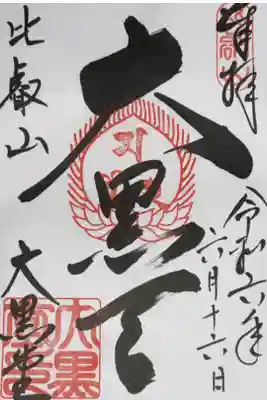 奉拝
令和六年
六月十六日
大黒天
比叡山
大黒堂